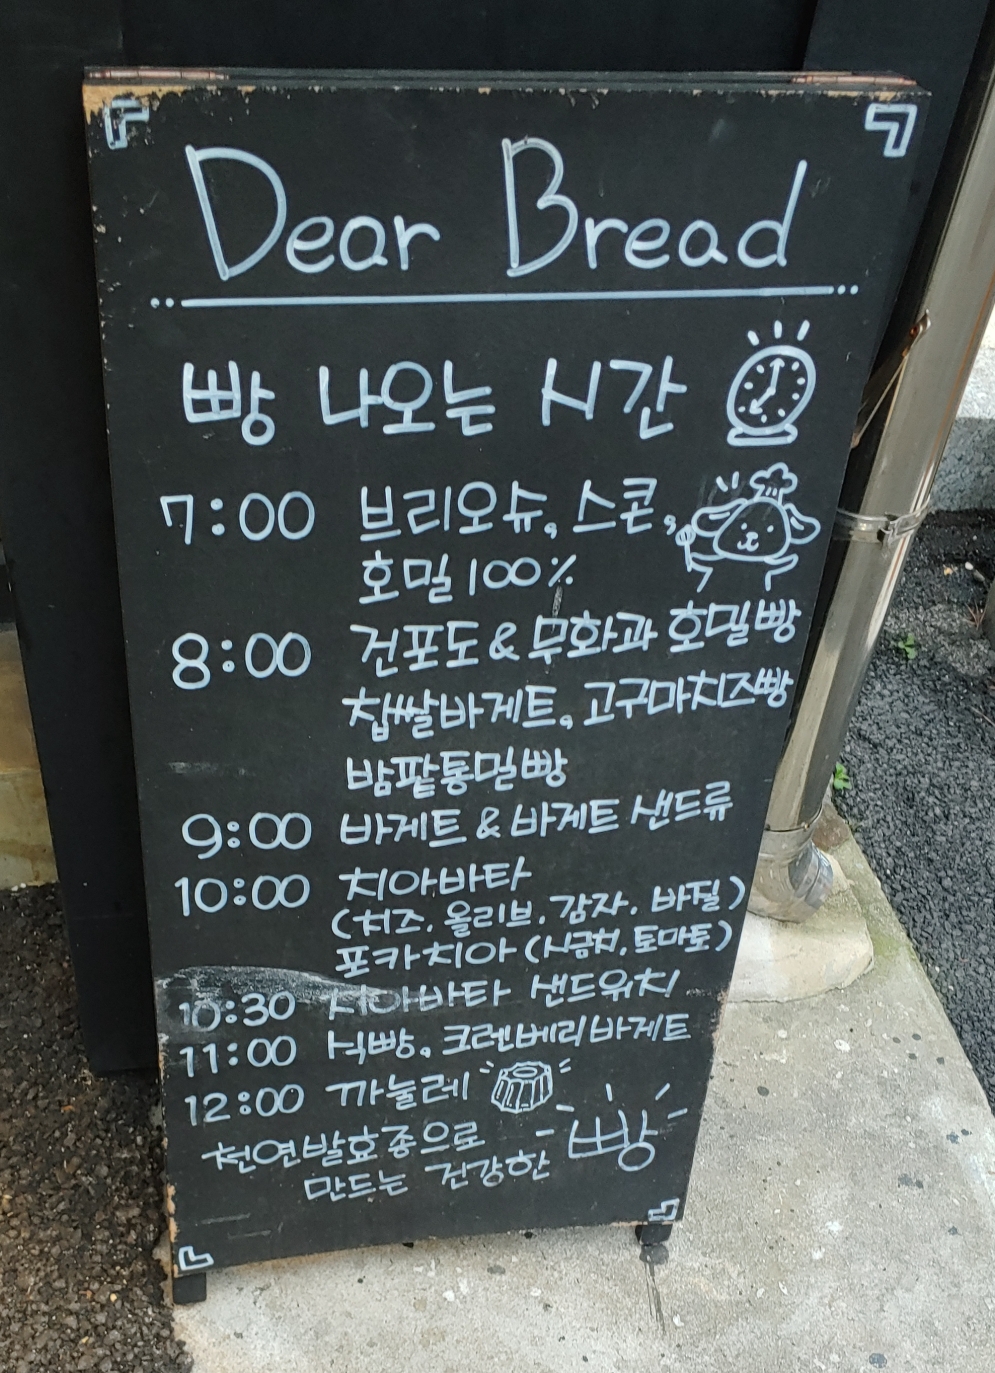 Dear Bread
빵 나오는 시간
7:00 브리오슈, 스콘,
호밀 100%
8:00 건포도 & 무화과 호밀빵
찹쌀바게트, 고구마치즈빵
밤팥통밀빵
9:00 바게트 & 바게트 샌드류
10:00 치아바타
(치즈, 올리브, 감자, 바질)
포카치아 (시금치, 토마토)
10:30 치아바타 샌드위치
11:00 식빵, 크렌베리바게트
12:00 까눌레
천연발효종으로
만드는 건강한 빵